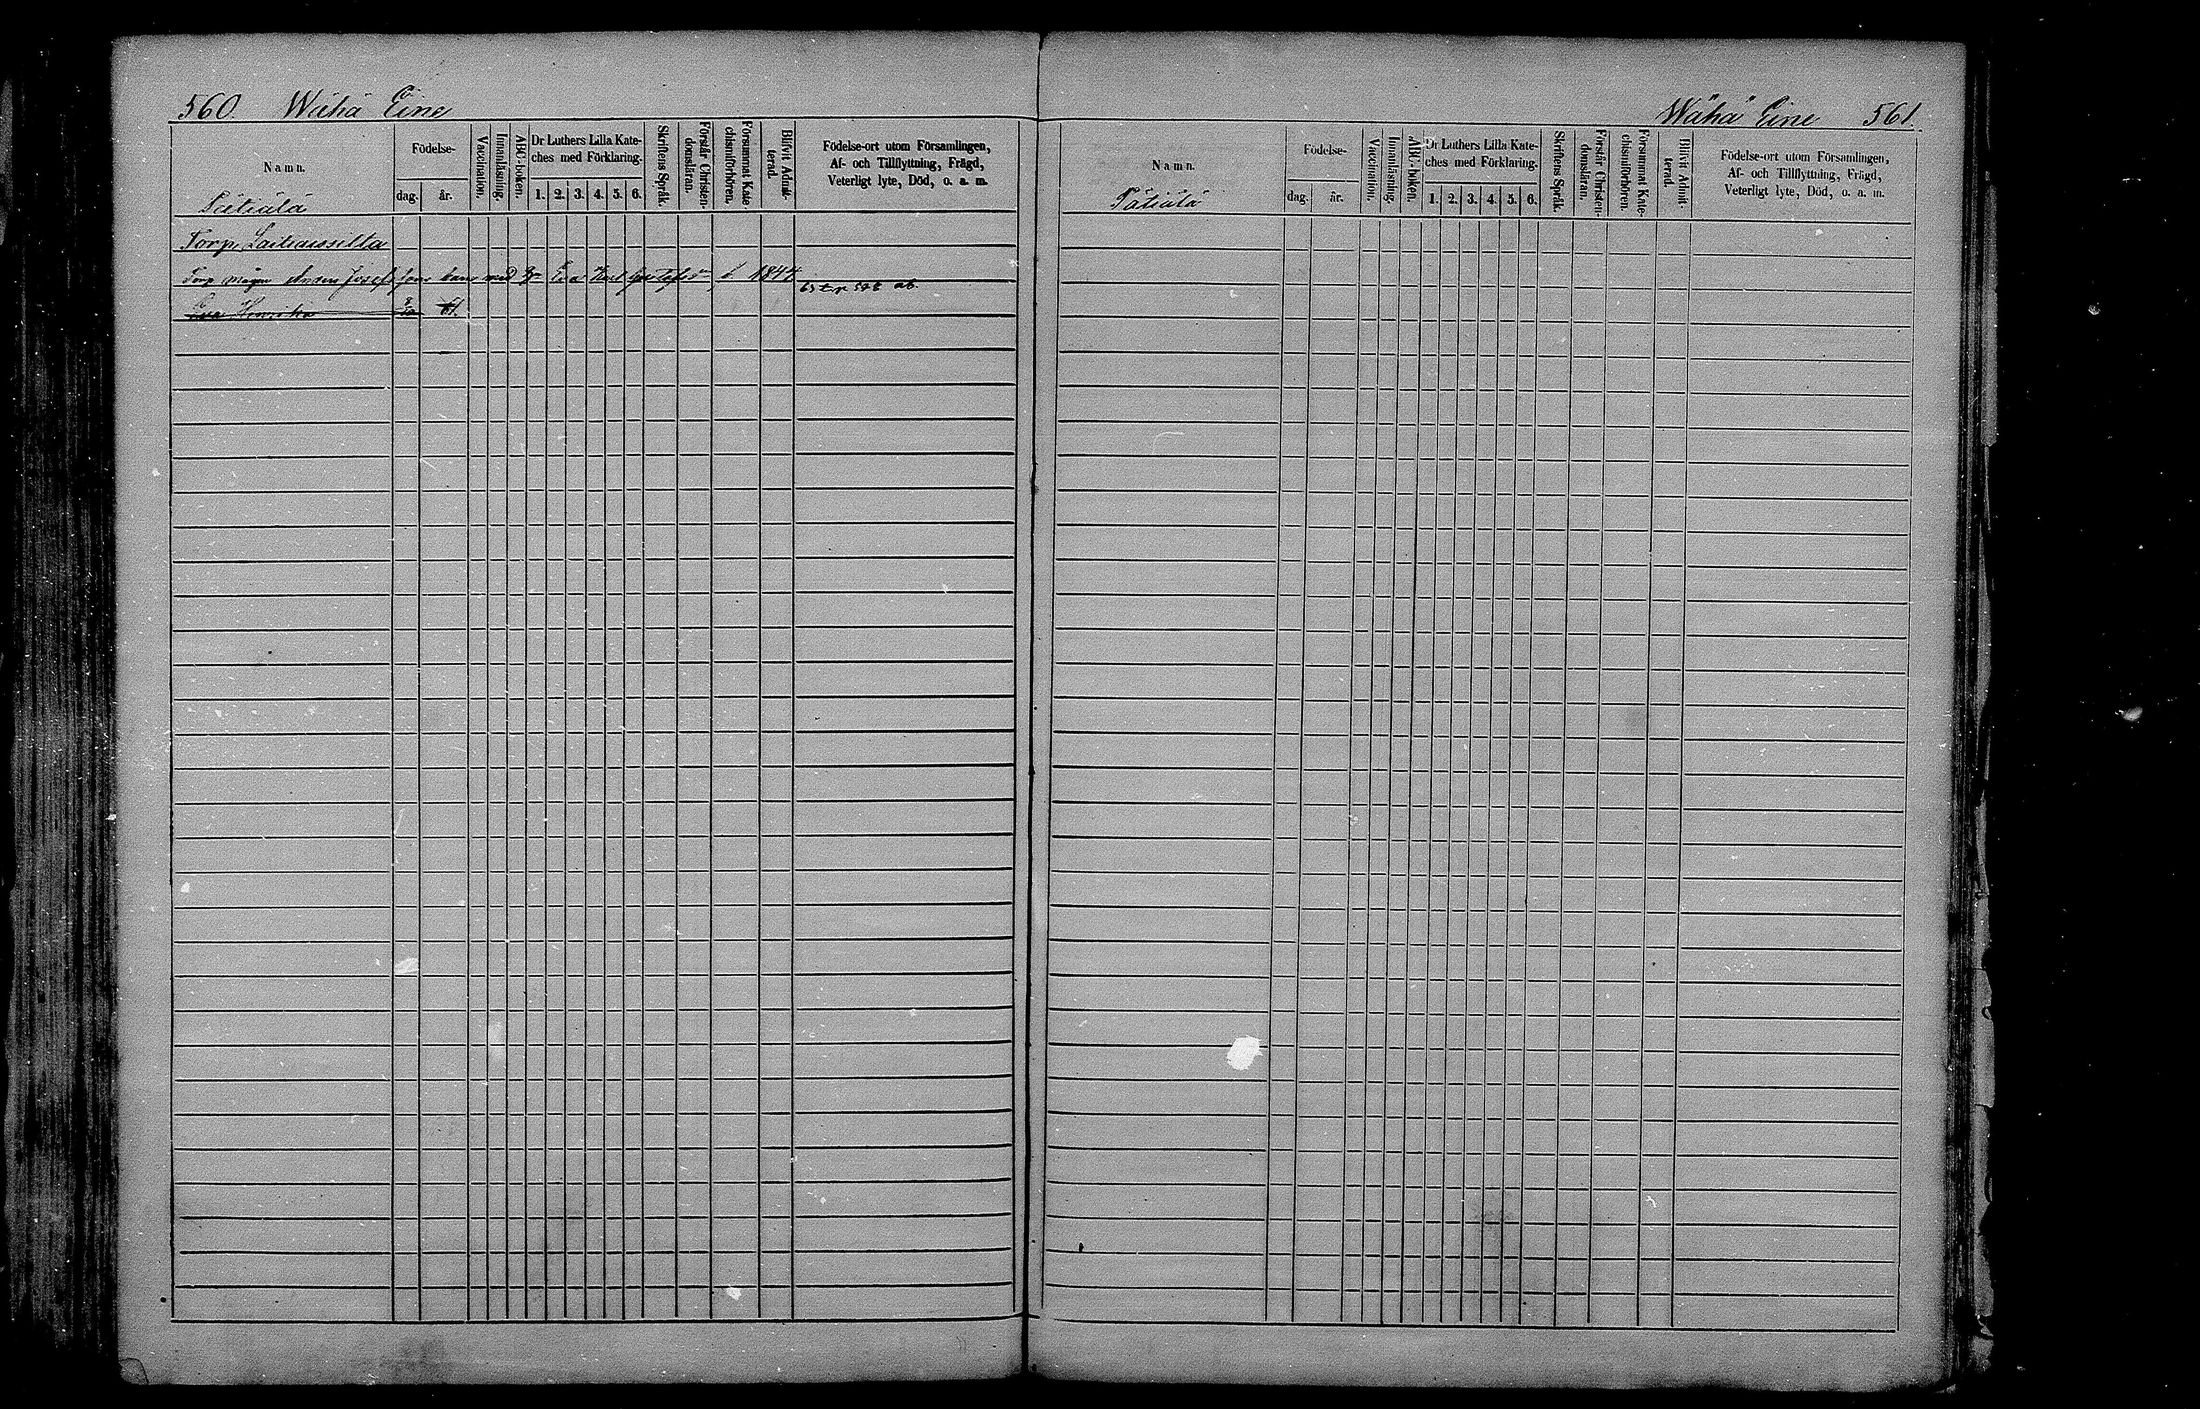 560. Wähä Eine
Namn.
Födelse-
dag. år.
Vaccination.
Innanläsning.
ABC-boken.
Dr Luthers Lilla Kate-
ches med Förklaring.
1. 2. 3. 4. 5. 6.
Skriftens Språk.
Förstår Christen-
domsläran.
Försummat Kate-
chismiförhören.
Blifvit Admit-
terad.
Födelse-ort utom Församlingen,
Af- och Tillflyttning, Frägd,
Veterligt lyte, Död, o. a. m.
Pätiälä
Torp
Torp Josefs sons med Eva Karl 1844
Eva 61.
Wähä Eine 561.
Namn.
Födelse-
dag. år.
Vaccination.
Innanläsning.
ABC-boken.
Dr Luthers Lilla Kate-
ches med Förklaring.
1. 2. 3. 4. 5. 6.
Skriftens Språk.
Förstår Christen-
domsläran.
Försummat Kate-
chismiförhören.
Blifvit Admit-
terad.
Födelse-ort utom Församlingen,
Af- och Tillflyttning, Frägd,
Veterligt lyte, Död, o. a. m.
Pätiälä